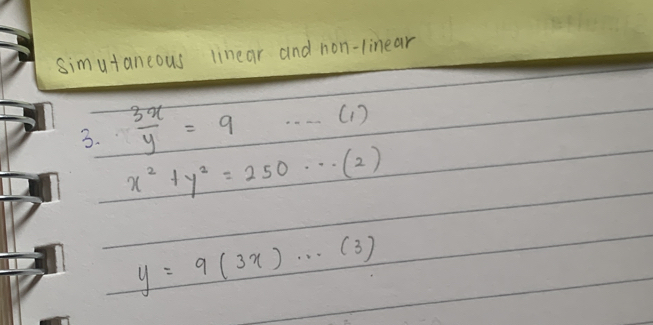 simutaneous linear and non-linear
3. 3x/y = 9 .... (1)
x² + y² = 250 ... (2)
y = 9(3x) ... (3)